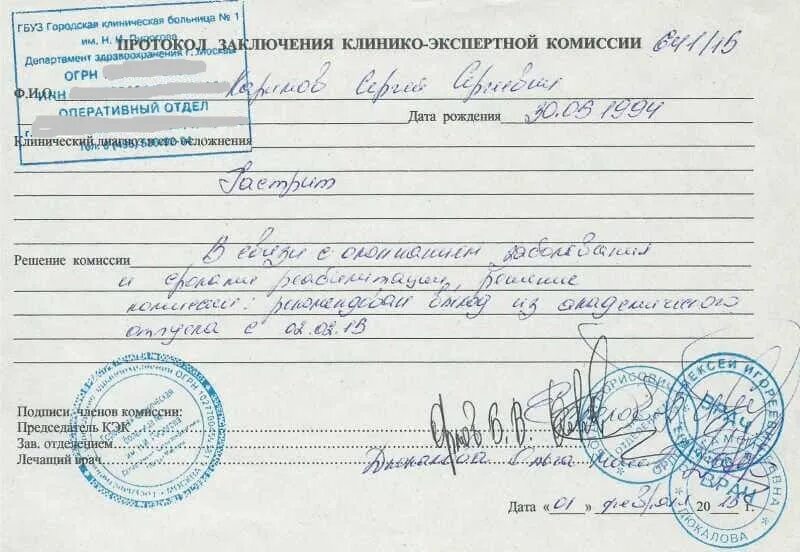 ГБУЗ Городская клиническая больница № 1
им. Н. И. Пирогова
Департамент здравоохранения г. Москвы
ОГРН
ИНН
ОПЕРАТИВНЫЙ ОТДЕЛ
г.
ПРОТОКОЛ ЗАКЛЮЧЕНИЯ КЛИНИКО-ЭКСПЕРТНОЙ КОМИССИИ 641/15
Ф.И.О. Каримов Сергей Сергеевич
Дата рождения 30.09.1994
Клинический диагноз осложнения
Гастрит
Решение комиссии В связи с окончанием заболевания
и сроками реабилитации, решение
комиссии: рекомендован выход из академического
отпуска с 02.02.15
Подписи членов комиссии:
Председатель КЭК
Зав. отделением
Лечащий врач
БОРИСОВИЧ
АЛЕКСЕЙ ИГОРЕВИЧ
ВРАЧ
ВРАЧ
ЛЮКАЛОВА
Дата «01» февраля 2015 г.